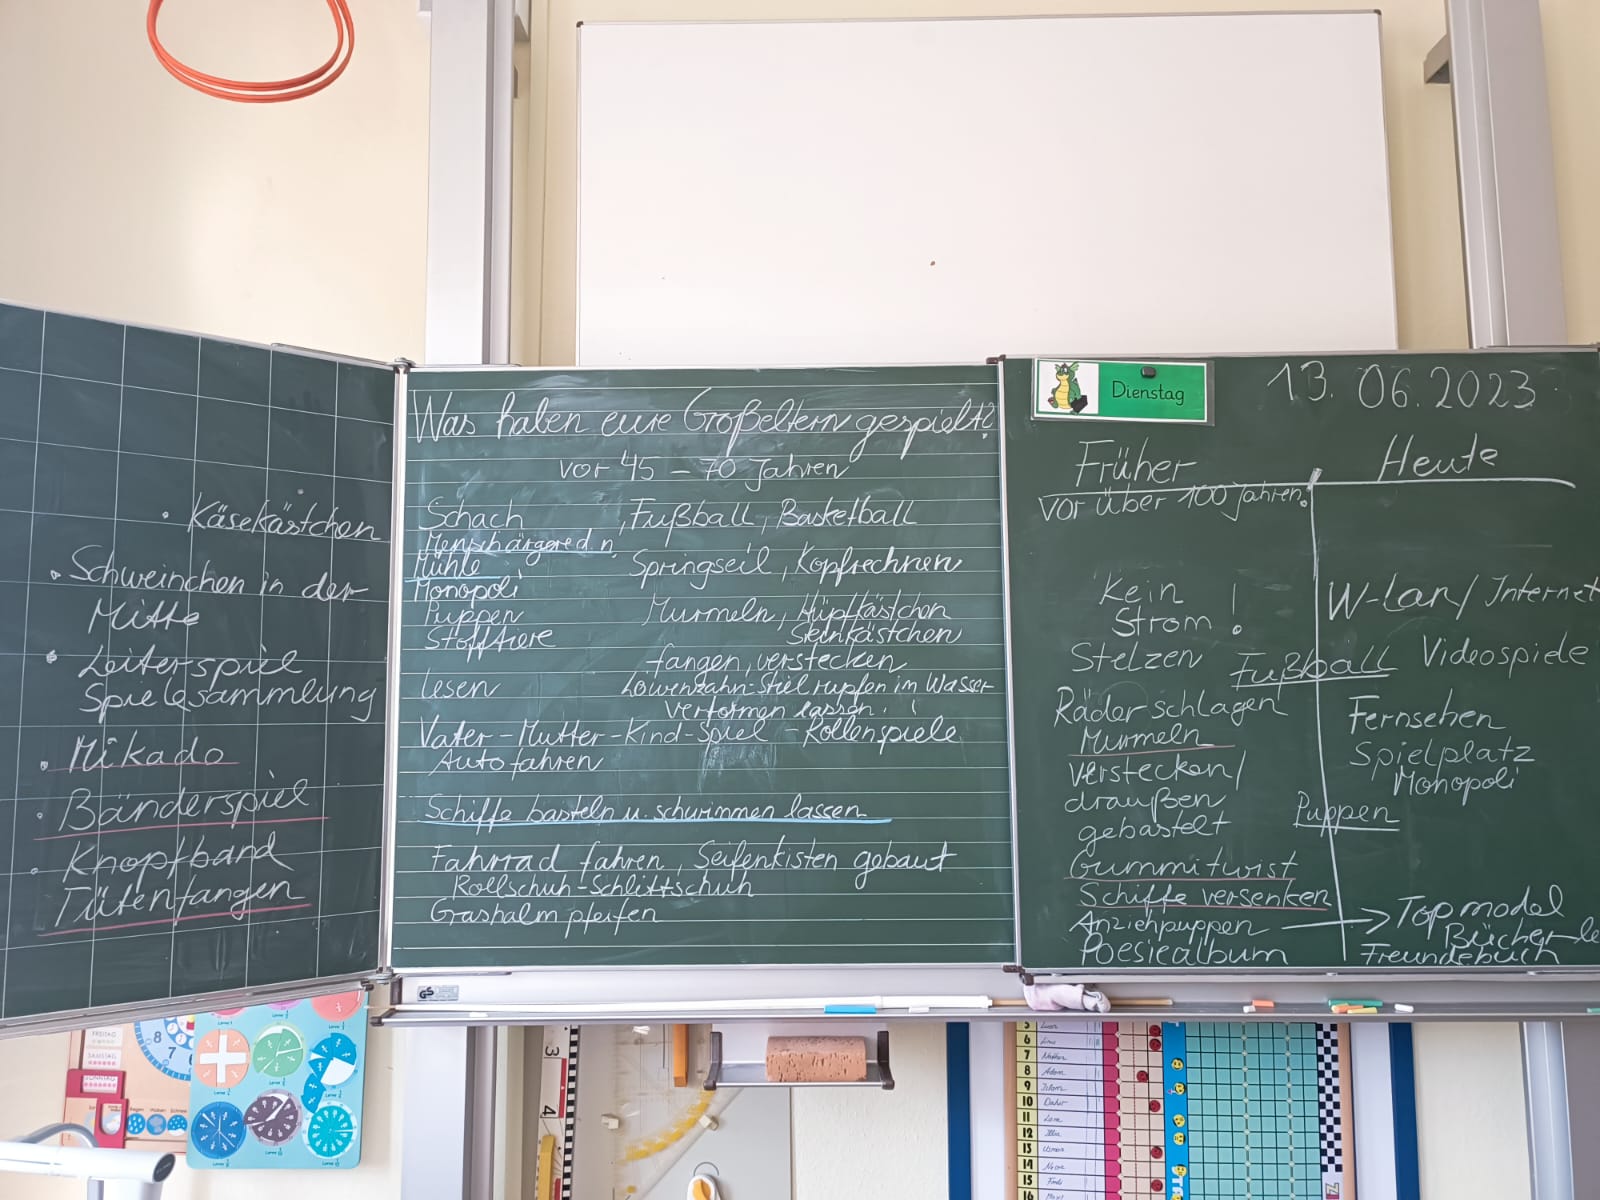 • Käsekästchen
• Schweinchen in der
Mitte
• Leiterspiel
Spielesammlung
• Mikado
• Bänderspiel
• Knopfband
Tütenfangen
Was haben eure Großeltern gespielt?
vor 45 – 70 Jahren
Schach , Fußball, Basketball
Mensch ärgere d. n.
Mühle Springseil, Kopfrechnen
Monopoli
Puppen Murmeln, Hüpfkästchen
Stofftiere Steinkästchen
fangen, verstecken
lesen Löwenzahn-Stiel rupfen im Wasser
verformen lassen.
Vater-Mutter-Kind-Spiel - Rollenspiele
Auto fahren
Schiffe basteln u. schwimmen lassen
Fahrrad fahren, Seifenkisten gebaut
Rollschuh-Schlittschuh
Grashalm pfeifen
Dienstag
13. 06. 2023
Früher Heute
vor über 100 Jahren
Kein W-Lan/Internet
Strom !
Stelzen Fußball Videospiele
Räder schlagen Fernsehen
Murmeln Spielplatz
verstecken/ Monopoli
draußen Puppen
gebastelt
Gummitwist
Schiffe versenken
Anziehpuppen → Topmodel
Bücher le
Poesiealbum Freundebuch
GS
FREITAG
SAMSTAG
SONNTAG
8
7
6
3
4
5
6
7
8 Adam
9
10
11
12
13
14
15
16